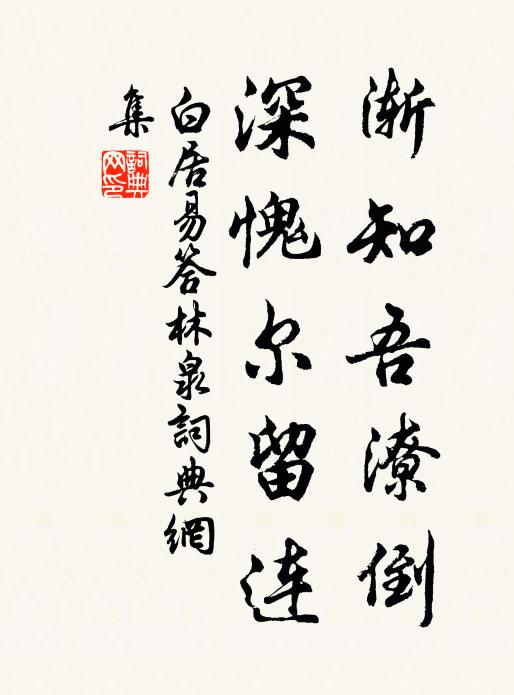 渐知吾潦倒
深愧尔留连
白居易答林泉詞典網
集
詞典
网印